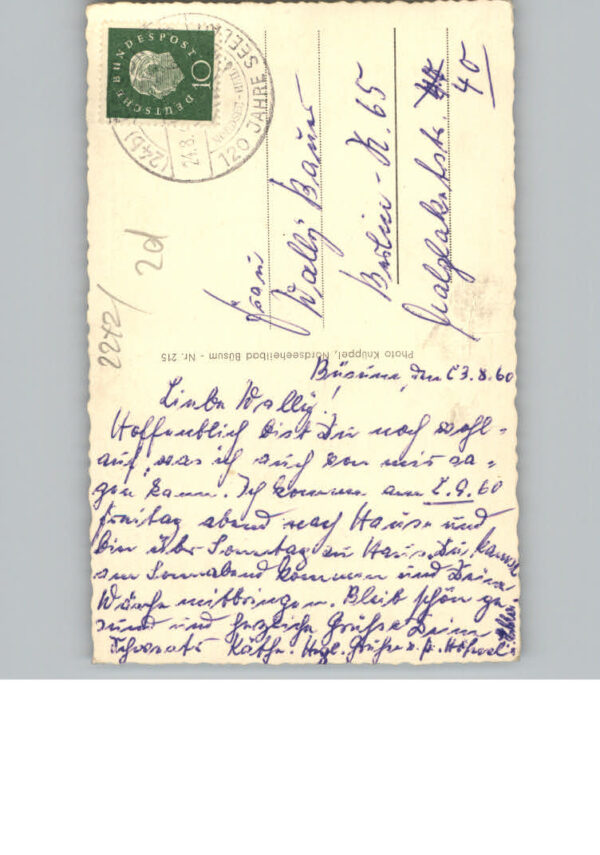 DEUTSCHE BUNDESPOST
10
(24b)
24.8.
120 JAHRE SEEL
Frau
Wally Bauer
Berlin - N. 65
40
2242/
20
Photo Knüppel, Nordseeheilbad Büsum - Nr. 215
Büsum, den 23.8.60
Liebe Wally!
Hoffentlich bist Du noch wohl-
auf, was ich auch von mir sa-
gen kann. Ich komme am 2.9.60
Freitag abend nach Hause und
bin über Sonntag zu Haus. Du kannst
am Sonnabend kommen und Deine
Wäsche mitbringen. Bleib schön ge-
sund und herzliche Grüße Deine
Käthe. Hrzl. Grüße